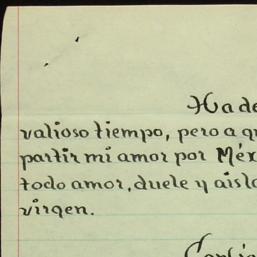 Ha de
valioso tiempo, pero a qu
partir mi amor por Méx
todo amor, duele y aisla
virgen.